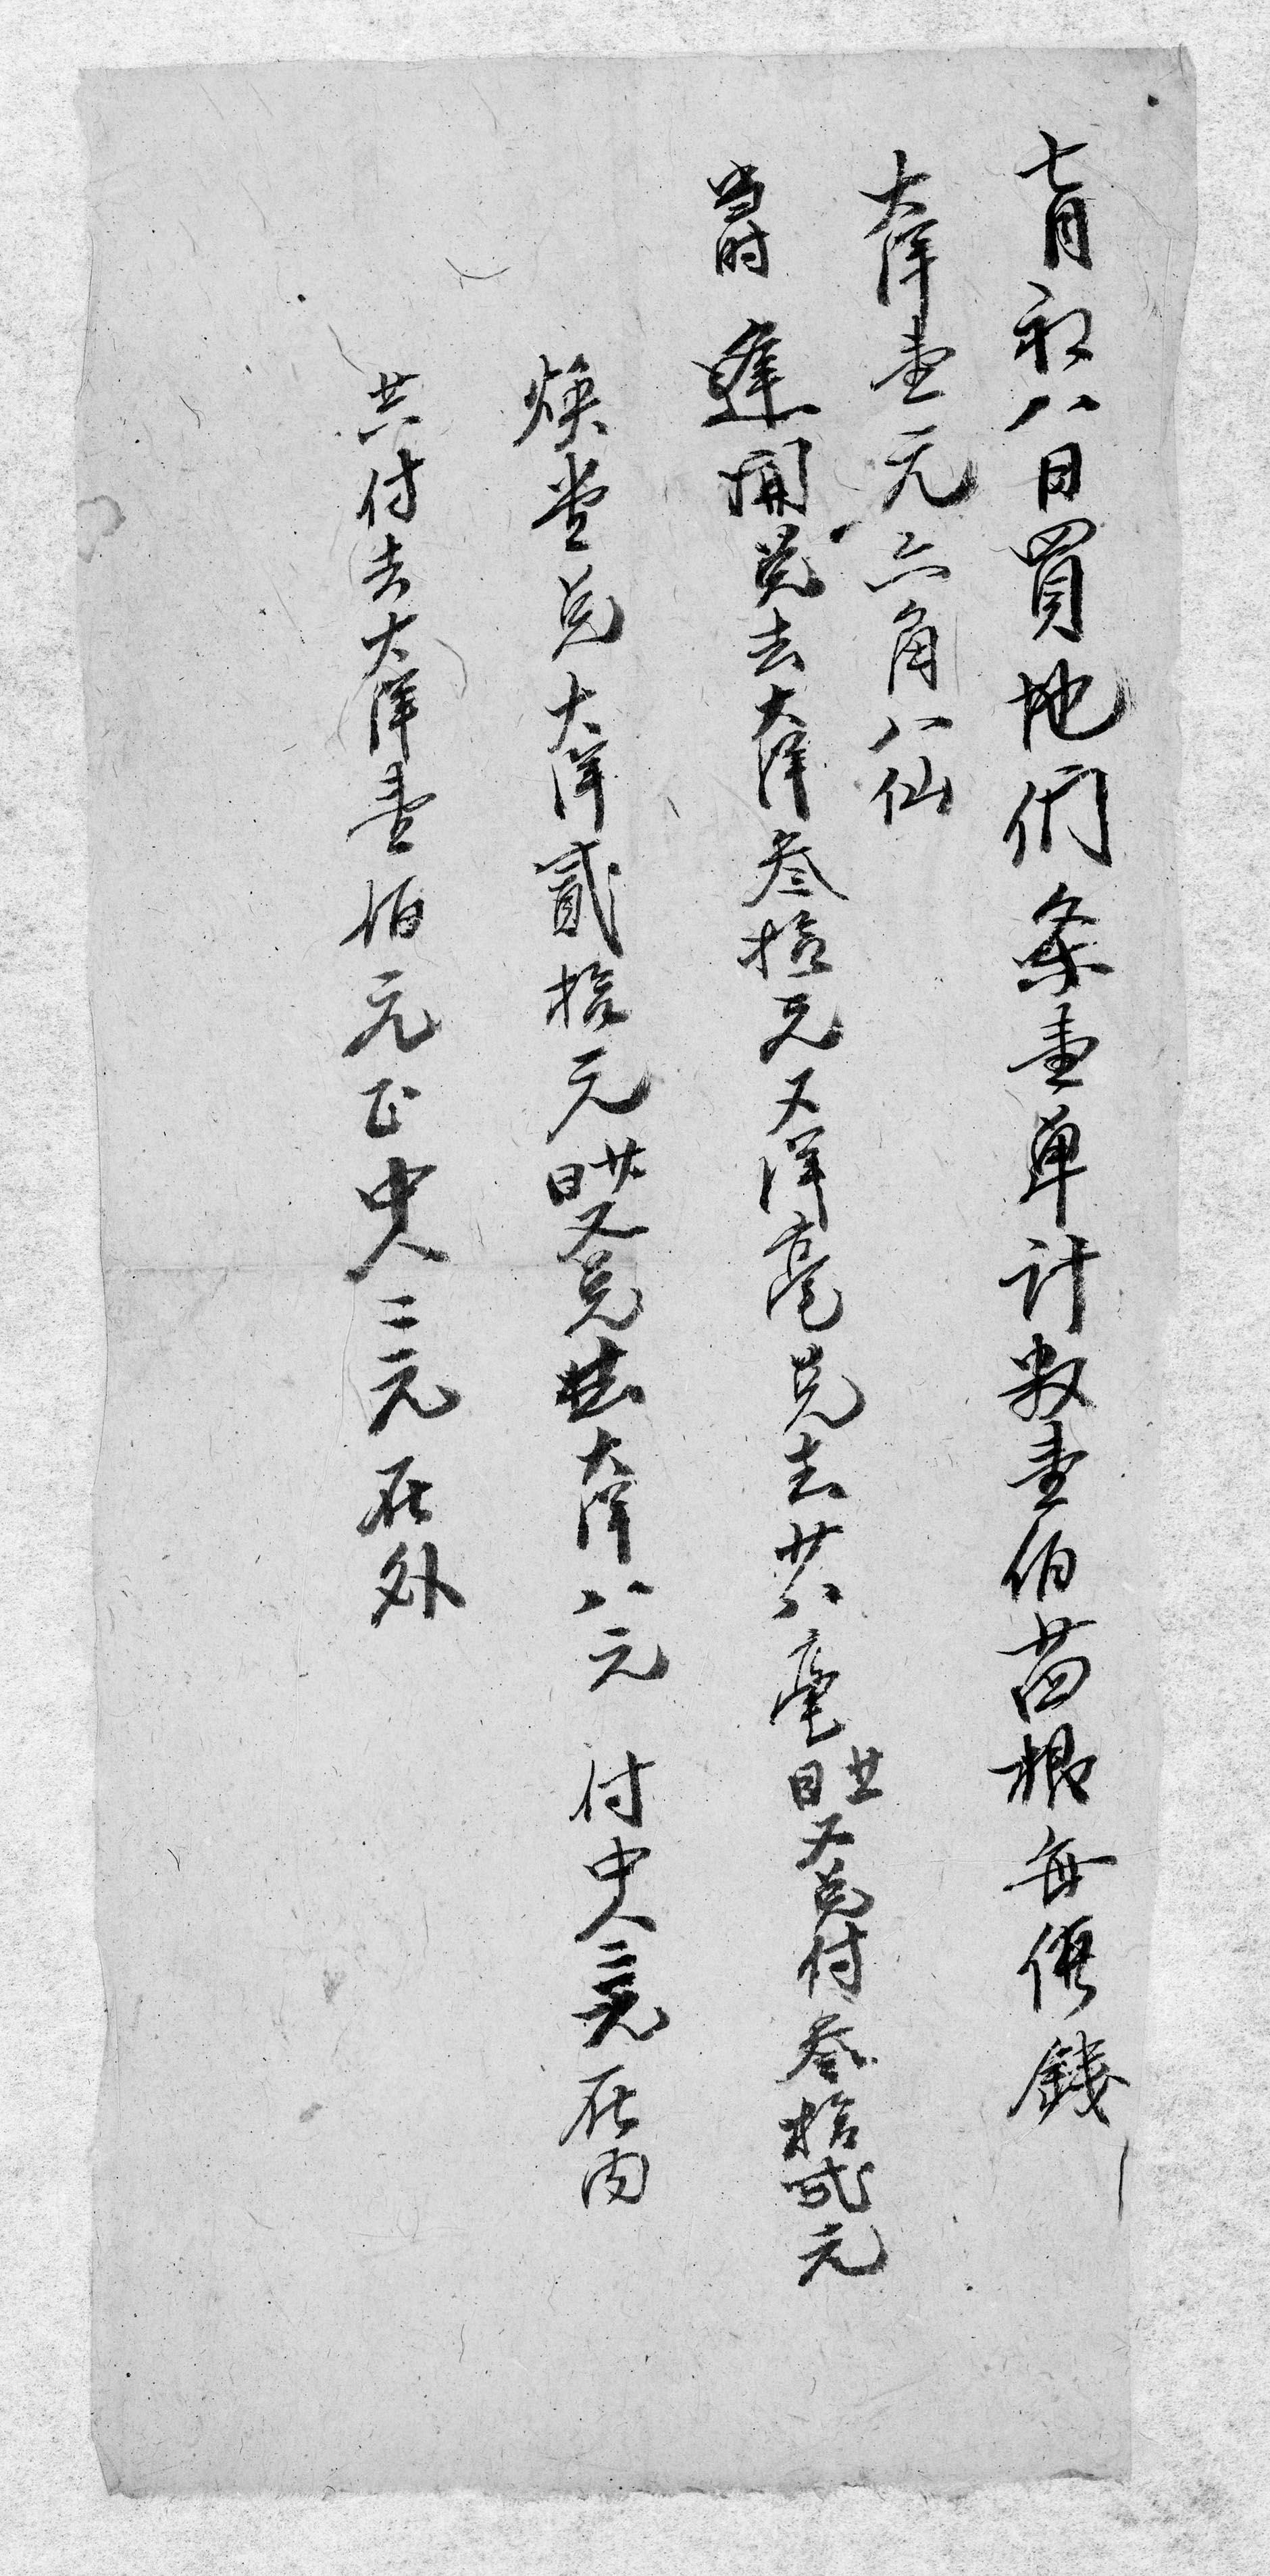 七月初八日買地們条壹单计数壹伯苗根每價錢
大洋壹元六角八仙
当时逢開兑去大洋叁拾元又洋毫兑去廿八毫廿日又兑付叁拾贰元
焕堂兑大洋貳拾元廿日又兑去大洋八元付中人二元在内
共付去大洋壹佰元正中人二元在外